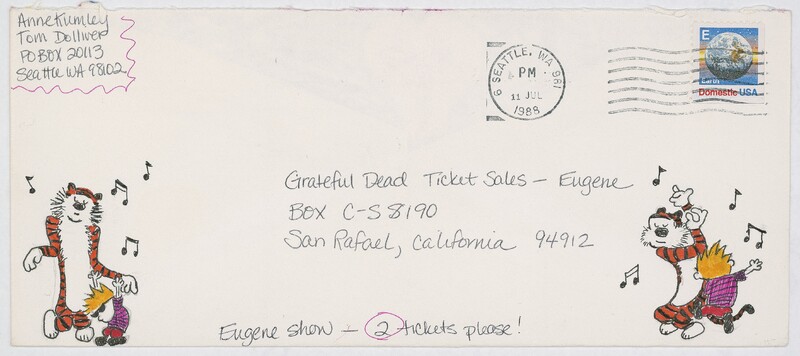 Anne Kumley
Tom Dolliver
PO BOX 20113
Seattle WA 98102
6 SEATTLE, WA 981
PM
11 JUL
1988
E
Earth
Domestic USA
Grateful Dead Ticket Sales — Eugene
BOX C-S 8190
San Rafael, California 94912
Eugene show — 2 tickets please!